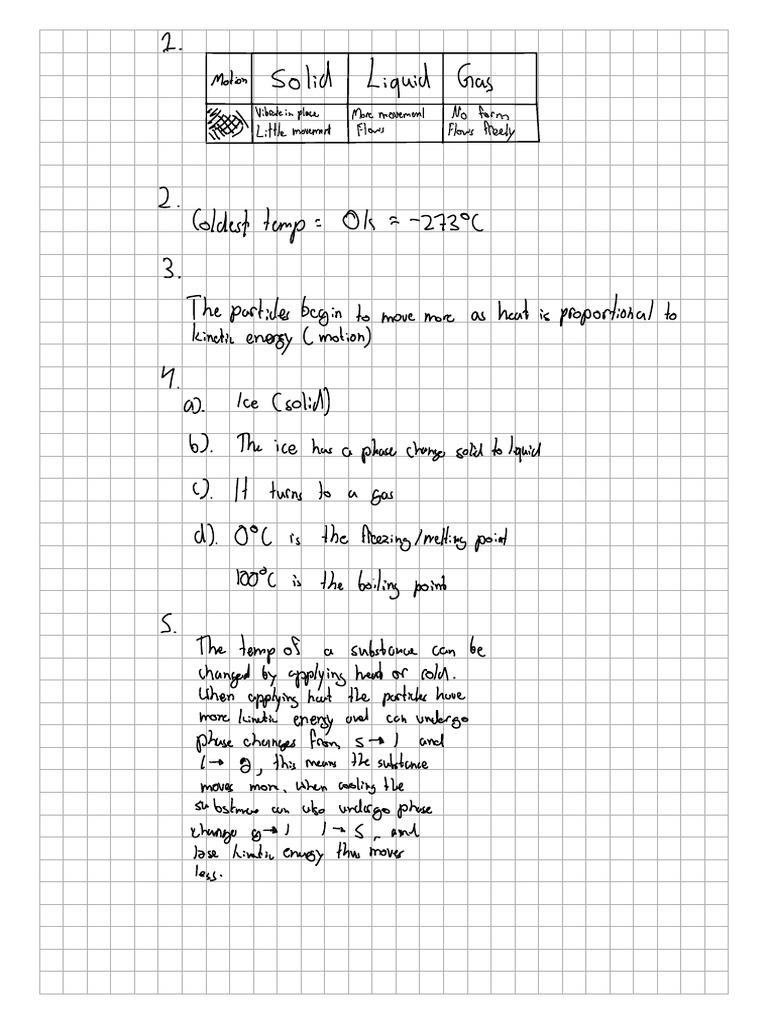 1.
Motion Solid Liquid Gas
Vibrate in place More movement No form
Little movement Flows Flows freely
2.
Coldest temp = 0k = -273°C
3.
The particles begin to move more as heat is proportional to
kinetic energy (motion)
4.
a). Ice (solid)
b). The ice has a phase change solid to liquid
c). It turns to a gas
d). 0°C is the freezing/melting point
100°C is the boiling point
5.
The temp of a substance can be
changed by applying heat or cold.
When applying heat the particles have
more kinetic energy and can undergo
phase changes from s → l and
l → g, this means the substance
moves more. When cooling the
substance can also undergo phase
change g → l l → s, and
lose kinetic energy thus moves
less.